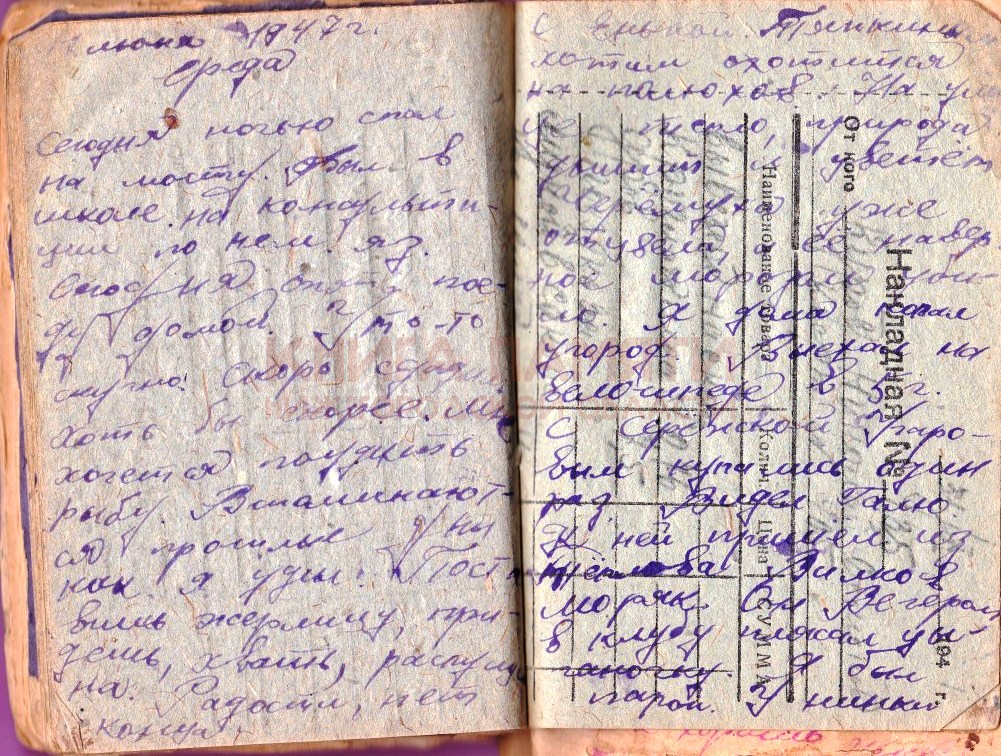 июня 1947 г.
Среда
Сегодня ночью спал
на мосту. Был в
школе на консульта-
ции по нем. яз.
Сегодня опять пое-
ду домой. Что-то
скучно. Скоро сдадим
хоть бы скорее. Мне
хочется поудить
рыбу. Вспоминают-
ся прошлые дни
как я удил. Поста
вишь жерлицу, при-
дешь, хвать, распуще
на. Радости, нет
конца.
С Енькой Тяпкиным
хотим охотится
на палюхов. На ули
це тепло, природа
кишит и цветёт
Черёмуха уже
отцвела, а её навер
ное морозом уби-
ло. Я дома копал
угород. Выехал на
велосипеде в 5 г.
С Серёжкой Гаро-
вым купались один
раз. Видел Галю
К ней пришёл из
Вилков
моряк. Он Вечером
в клубу плясал цы-
ганочку. Я был
парой. У нинки
Накладная №
От кого
Наименование товара
Колич.
Цена
СУММА
194 г.